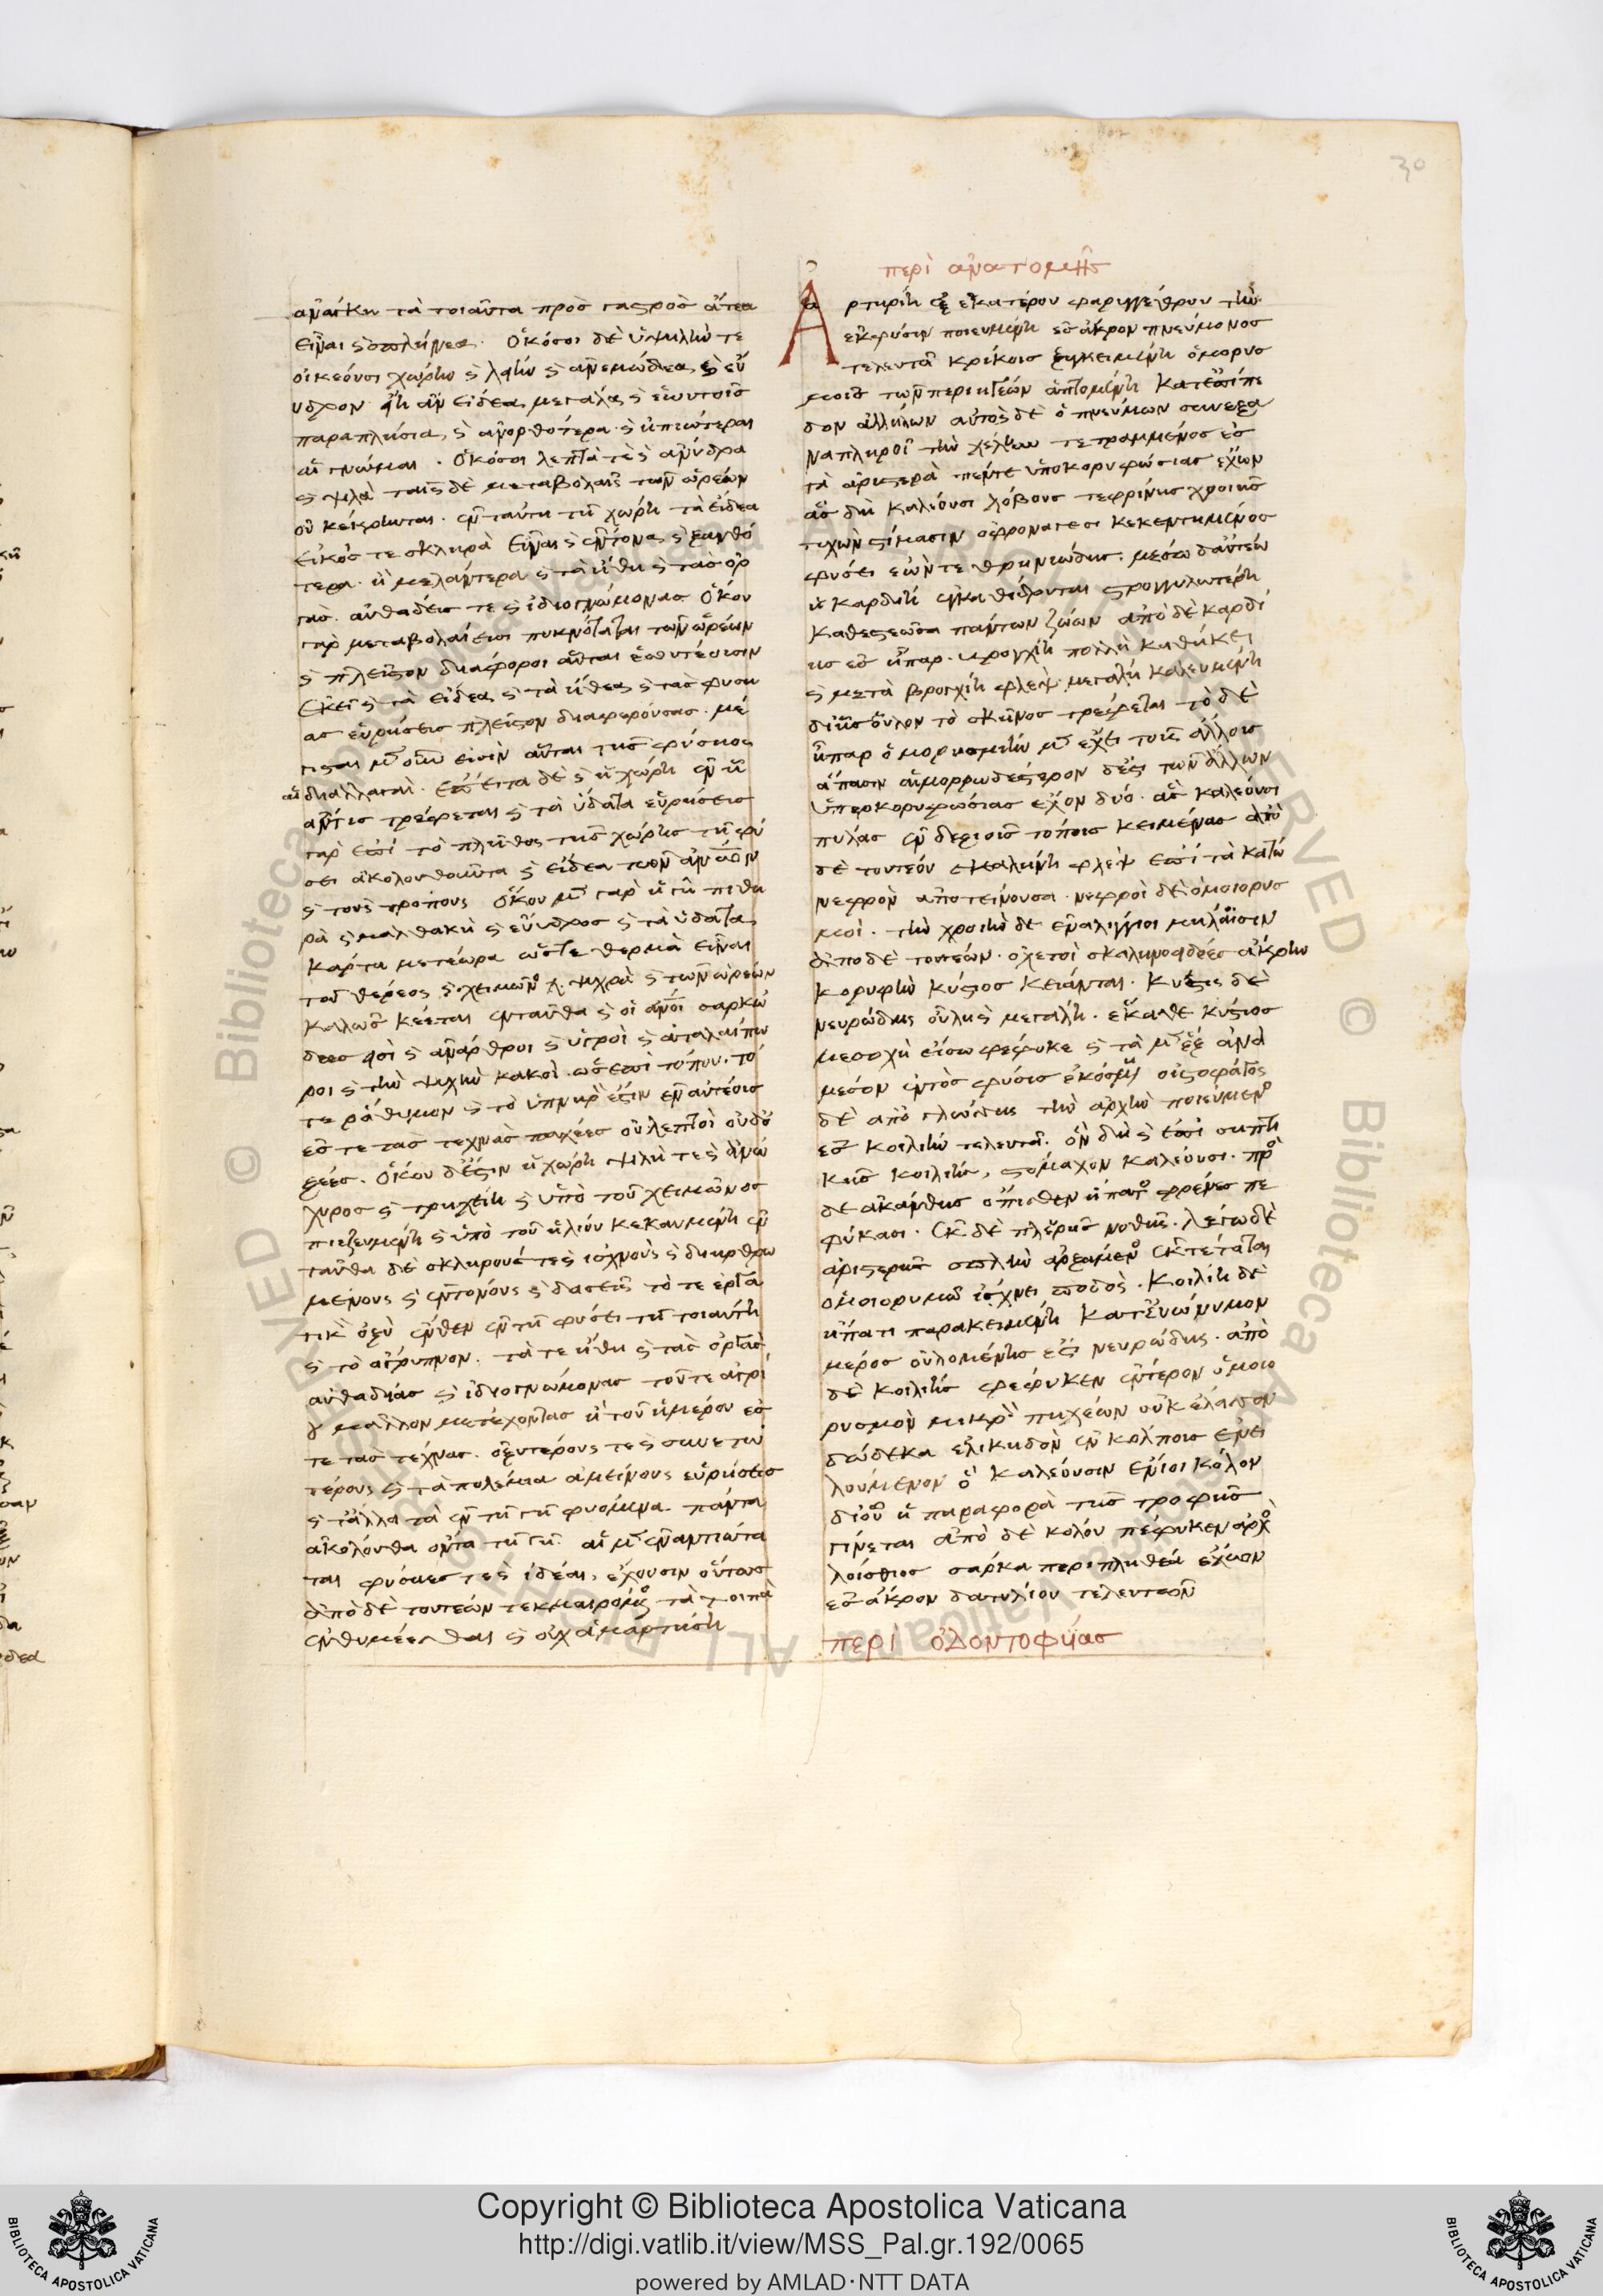 30
ἀνάγκη τὰ τοιαῦτα πρὸς γαστρὸς ἄτεα
εἶναι καὶ σπλῆνεα. Ὁκόσοι δὲ ὑψηλήν τε
οἰκέουσι χώρην καὶ λείην καὶ ἀνεμώδεα καὶ εὔ
υδρον εἴη ἂν εἴδεα μεγάλα καὶ ἑωυτοῖς
παραπλήσια, καὶ ἀνορθότερα καὶ ἠπιώτεραι
αἱ γνῶμαι. Ὁκόσοι λεπτά τε καὶ ἄνυδρα
καὶ ψιλὰ ταῖς δὲ μεταβολαῖς τῶν ὡρέων
οὐ κέκρηνται. ἐν ταύτῃ τῇ χώρῃ τὰ εἴδεα
εἰκός τε σκληρὰ εἶναι καὶ ἔντονα καὶ ξανθό
τερα ἢ μελάντερα καὶ τὰ ἤθη καὶ τὰς ὀρ
γὰς αὐθάδεις τε καὶ ἰδιογνώμονας Ὅκου
γὰρ μεταβολαί εἰσι πυκνόταται τῶν ὡρέων
καὶ πλεῖστον διάφοροι αὗται ἑωυτέῃσιν
ἐκεῖ καὶ τὰ εἴδεα καὶ τὰ ἤθεα καὶ τὰς φύσι
ας εὑρήσεις πλεῖστον διαφερούσας. μέ
γισται μὲν οὖν εἰσὶν αὗται τῆς φύσιος
αἱ διαλλαγαί. ἔπειτα δὲ καὶ ἡ χώρη ἐν ᾗ
ἄν τις τρέφηται καὶ τὰ ὕδατα εὑρήσεις
γὰρ ἐπὶ τὸ πλῆθος τῆς χώρης τῇ φύ
σει ἀκολουθοῦντα καὶ εἴδεα τῶν ἀνων
καὶ τοὺς τρόπους Ὅκου μὲν γὰρ ἡ γῆ πιθη
ρὰ καὶ μαλθακὴ καὶ εὔυδρος καὶ τὰ ὕδατα
κάρτα μετέωρα ὥστε θερμὰ εἶναι
τοῦ θέρεος καὶ χειμῶνος ψυχρὰ καὶ τῶν ὡρέων
καλῶς κέεται ἐνταῦθα καὶ οἱ ἄνοι σαρκώ
δεες εἰσὶ καὶ ἄναρθροι καὶ ὑγροὶ καὶ ἀταλαίπω
ροι καὶ τὴν ψυχὴν κακοὶ ὡς ἐπὶ τὸ πουλύ. τό
τε ῥάθυμον καὶ τὸ ὑπνηρὸν ἔστιν ἐν αὐτέοις
ἔς τε τὰς τέχνας παχέες οὐ λεπτοὶ οὐδ' ὀ
ξέες. Ὅκου δ' ἔστιν ἡ χώρη ψιλή τε καὶ ἄνυ
δρος καὶ τρηχείη καὶ ὑπὸ τοῦ χειμῶνος
πιεζευμένη καὶ ὑπὸ τοῦ ἡλίου κεκαυμένη ἐν
ταῦθα δὲ σκληρούς τε καὶ ἰσχνοὺς καὶ διηρθρω
μένους καὶ ἐντόνους καὶ δασεῖς τό τε ἐργα
τικὸν ὀξὺ ἔνθεν ἐν τῇ φύσει τῇ τοιαύτῃ
καὶ τὸ ἄγρυπνον. τά τε ἤθη καὶ τὰς ὀργὰς
αὐθάδηας καὶ ἰδιογνώμονας τοῦ τε ἀγρί
ου μᾶλλον μετέχοντας ἢ τοῦ ἡμέρου ἔς
τε τὰς τέχνας ὀξυτέρους τε καὶ συνετω
τέρους καὶ τὰ πολέμια ἀμείνους εὑρήσεις
καὶ τἆλλα τὰ ἐν τῇ γῇ φυόμενα πάντα
ἀκόλουθα ὄντα τῇ γῇ. αἱ μὲν ἐναντιώτα
ται φύσιες τε καὶ ἰδέαι, ἔχουσιν οὕτως
ἀπὸ δὲ τουτέων τεκμαιρόμενος τὰ λοιπὰ
ἐνθυμέεσθαι καὶ οὐχ ἁμαρτήσῃ
περὶ ἀνατομῆς
Ἀρτηρίη ἐξ ἑκατέρου φαρυγγέθρου τὴν
ἔκφυσιν ποιευμένη ἐς ἄκρον πνεύμονος
τελευτᾷ κρίκοις ξυγκειμένη ὁμορυσ
μοῖς τῶν περιηγέων ἁπτομένη κατ' ἐπίπε
δον ἀλλήλων αὐτὸς δὲ ὁ πνεύμων συνεξα
ναπληροῖ τὴν χέλυν τετραμμένος ἐς
τὰ ἀριστερὰ πέντε ὑποκορυφώσιας ἔχων
ἃς δὴ καλέουσι λόβους τεφρίνης χροιῆς
τυχὼν στίμασιν ὀφρονάτεσι κεκεντημένος
φύσει ἐὼν τεθρηνιώδης. μέσῳ δ' αὐτέω
ἡ καρδίη ἐγκαθίδρυται στρογγυλωτέρη
καθεστεῶσα πάντων ζώων ἀπὸ δὲ καρδί
ης ἐς ἧπαρ βρογχίη πολλὴ καθήκει
καὶ μετὰ βρογχίη φλὲψ μεγάλη καλευμένη
δι' ἧς οὖλον τὸ σκῆνος τρέφεται τὸ δὲ
ἧπαρ ὁμορυσμίην μὲν ἔχει τοῖς ἄλλοις
ἅπασιν αἱμορρωδέστερον δ' ἐστὶ τῶν ἄλλων
ὑπερκορυφώσιας ἔχον δύο ἃς καλέουσι
πύλας ἐν δεξιοῖς τόποις κειμένας ἀπὸ
δὲ τουτέου σκαληνὴ φλὲψ ἐπὶ τὰ κάτω
νεφρὸν ἀποτείνουσα. νεφροὶ δὲ ὁμοιορυσ
μοὶ. τὴν χροιὴν δὲ ἐναλίγκιοι μήλοισιν
ἀπὸ δὲ τουτέων ὀχετοὶ σκαληνοειδέες ἄκρην
κορυφὴν κύστιος κέανται. Κύστις δὲ
νευρώδης οὔλη καὶ μεγάλη. ἕκαθε κύστιος
μεσοχὴ εἴσω πέφυκε καὶ τὰ μὲν ἓξ ἀνὰ
μέσον ἐντὸς φύσις ἐκόσμη οἰσοφάγος
δὲ ἀπὸ γλώσσης τὴν ἀρχὴν ποιεύμενος
ἐς κοιλίην τελευτᾷ. ὃν δὴ καὶ ἐπὶ σηπτι
κῆς κοιλίης, στόμαχον καλέουσι. πρὸς
δὲ ἀκάνθης ὄπισθεν ἥπατος φρένες πε
φύκασι. ἐκ δὲ πλευρῆς νόθης. λέγω δὲ
ἀριστερῆς σπλὴν ἀρξάμενος ἐκτέταται
ὁμοιορυσμὸν ἴχνει ποδός. Κοιλίη δὲ
ἥπατι παρακειμένη κατ' εὐώνυμον
μέρος οὐλομένης ἐστὶ νευρώδης. ἀπὸ
δὲ κοιλίης πέφυκεν ἔντερον ὁμοιο
ρυσμὸν μικρὸν πηχέων οὐκ ἔλασσον
δώδεκα ἑλικηδὸν ἐν κόλποις ἐνει
λούμενον ὃ καλέουσιν ἔνιοι κόλον
δι' οὗ ἡ παραφορὰ τῆς τροφῆς
γίνεται ἀπὸ δὲ κόλου πέφυκεν ἀρχὸς
λοίσθιος σάρκα περιπληθέα ἔχων
ἐς ἄκρον δατυλίου τελευτεῶν
περὶ ὀδοντοφυΐας
Copyright © Biblioteca Apostolica Vaticana
http://digi.vatlib.it/view/MSS_Pal.gr.192/0065
powered by AMLAD·NTT DATA
BIBLIOTECA APOSTOLICA VATICANA
BIBLIOTECA APOSTOLICA VATICANA